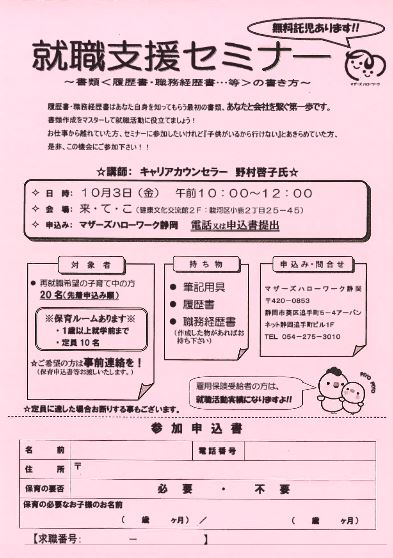 無料託児あります!!
就職支援セミナー
～書類＜履歴書・職務経歴書…等＞の書き方～
マザーズハローワーク
履歴書・職務経歴書はあなた自身を知ってもらう最初の書類、あなたと会社を繋ぐ第一歩です。
書類作成をマスターして就職活動に役立てましょう！
お仕事から離れていた方、セミナーに参加したいけれど『子供がいるから行けない』とあきらめていた方、
是非、この機会にご参加下さい！！
☆講師： キャリアカウンセラー 野村啓子氏☆
✧ 日 時： 10月3日（金） 午前10：00～12：00
✧ 会 場： 来・て・こ（健康文化交流館2F：駿河区小鹿2丁目25－45）
✧ 申込み： マザーズハローワーク静岡 電話又は申込書提出
対象者
● 再就職希望の子育て中の方
20名（先着申込み順）
※保育ルームあります※
・1歳以上就学前まで
・定員10名
☆ご希望の方は事前連絡を！
（保育申込書等お渡しいたします。）
持ち物
● 筆記用具
● 履歴書
● 職務経歴書
（作成した物があればお持ち下さい）
申込み・問合せ
マザーズハローワーク静岡
〒420－0853
静岡市葵区追手町5－4アーバン
ネット静岡追手町ビル1F
TEL 054－275－3010
雇用保険受給者の方は、
就職活動実績になりますよ!!
☆定員に達した場合お断りする事もございます。
参加申込書
名 前
電話番号
住 所
〒
保育の要否
必 要 ・ 不 要
保育の必要なお子様のお名前
（ 歳 ヶ月） ／ （ 歳 ヶ月）
【求職番号： － 】